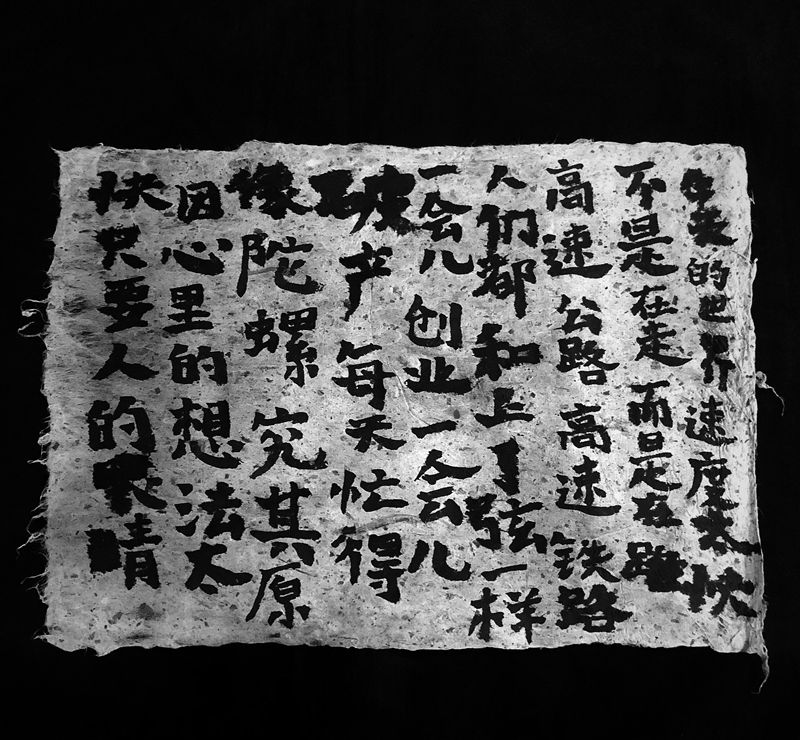 的世界速度太快
不是在走而是在跑
高速公路高速铁路
人们都和上了弦一样
一会儿创业一会儿
破产每天忙得
像陀螺究其原
因心里的想法太
快只要人的